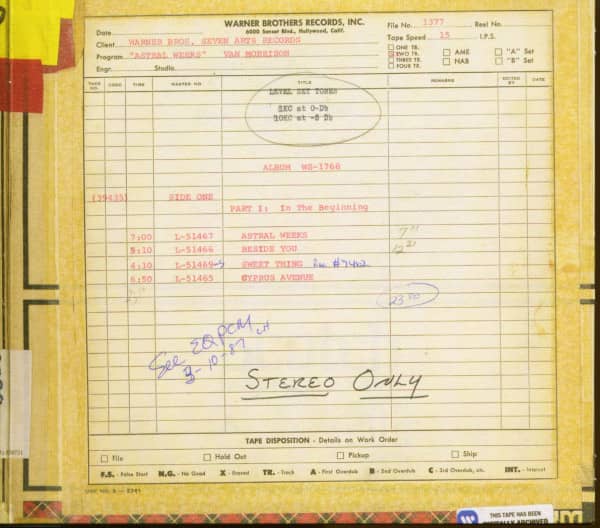 WARNER BROTHERS RECORDS, INC.
6000 Sunset Blvd., Hollywood, Calif.
Date
File No. 1377 Reel No.
Client WARNER BROS. SEVEN ARTS RECORDS
Tape Speed 15 I.P.S.
Program "ASTRAL WEEKS" VAN MORRISON
ONE TR.
TWO TR.
THREE TR.
FOUR TR.
AME
NAB
"A" Set
"B" Set
Engr. Studio
TAKE NO. CODE TIME MASTER NO TITLE REMARKS EDITED BY DATE
LEVEL SET TONES
1KC at 0-Db
10KC at -8 Db
ALBUM WS-1768
(39435) SIDE ONE
PART I: In The Beginning
7:00 L-51467 ASTRAL WEEKS 7"
5:10 L-51466 BESIDE YOU 12"
4:10 L-51469-S SWEET THING #7402
6:50 L-51465 CYPRUS AVENUE
See EQPCM
3-10-87
STEREO ONLY
TAPE DISPOSITION - Details on Work Order
File Hold Out Pickup Ship
F.S. - False Start N.G. - No Good X - Erased TR. - Track A - First Overdub B - 2nd Overdub C - 3rd Overdub, etc. INT. - Intercut
THIS TAPE HAS BEEN
DIGITALLY ARCHIVED